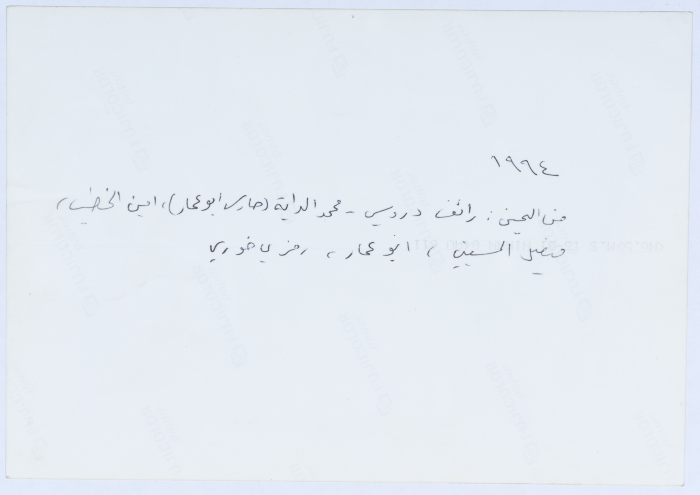 ١٩٩٤
من اليمين: رائف درويس - محمد الداية (حارس ابو عمار)، امين الخطيب،
فيصل الحسيني، ابو عمار، رمزي خوري